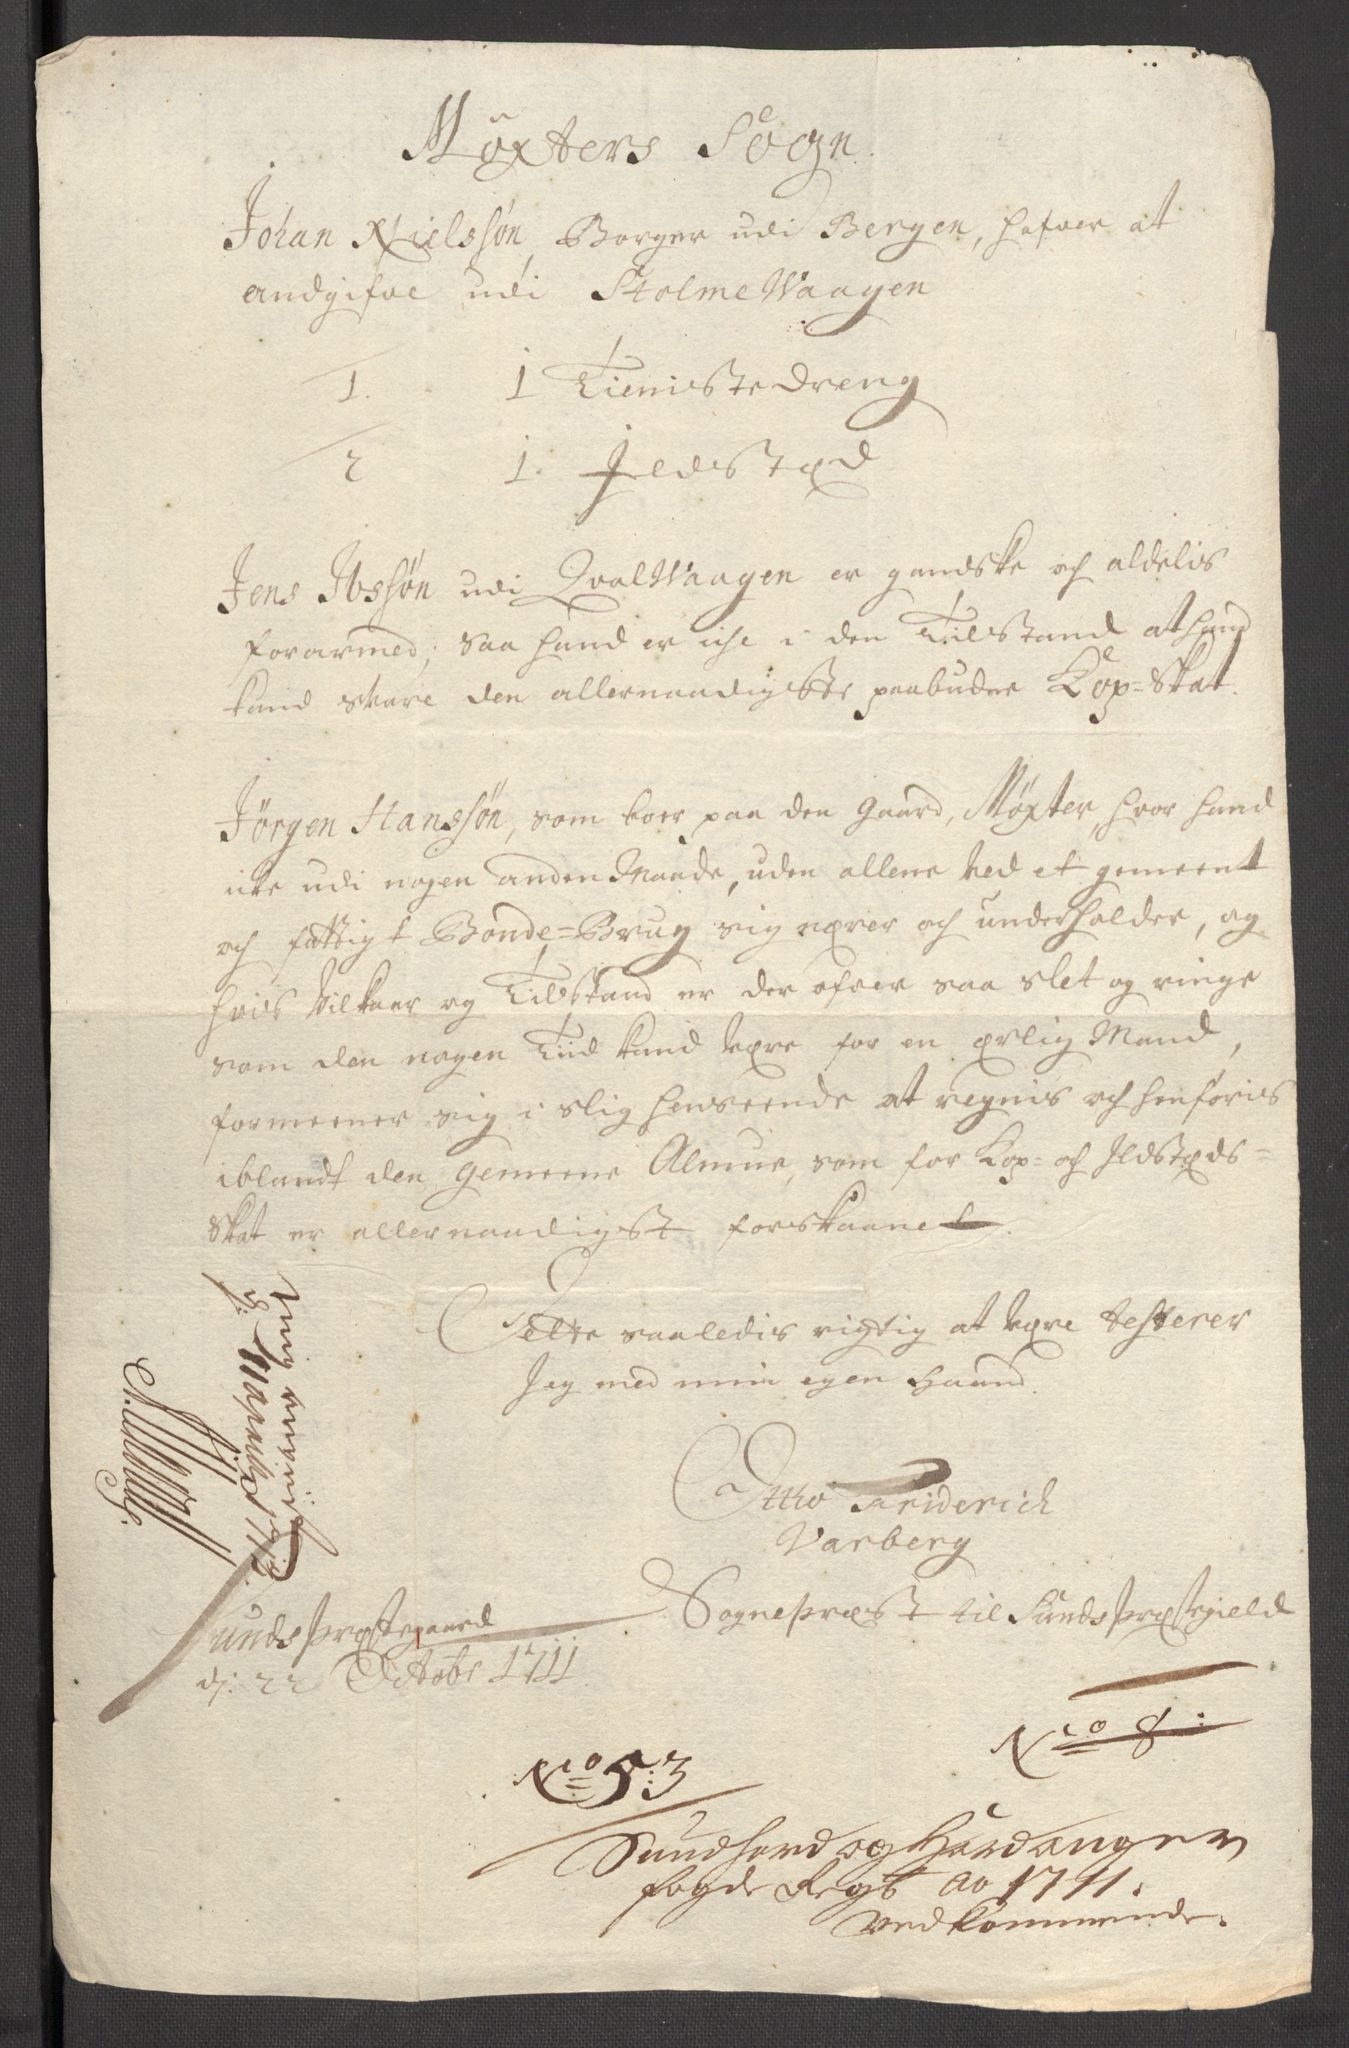 Møxters Sogn.
Johan Nielssøn, Borger udi Bergen, hafver at
andgifve udi StolmeWaagen
1. 1 Tieniste dreng
2 1. Ildstæd
Jens Ibssøn udi QvalWaagen er gandske och aldelis
forarmed, saa hand er iche i den Tilstand at hand
kand svare den allernaadigste paabudne Kop-Skat.
Jörgen Hanssøn, som boer paa den gaard, Møxter, hvor hand
icke udi nogen anden Maade, uden allene ved et gemeent
och fattigt Bonde-Brug sig nærer och underholder, og
hvis Vilkaar og Tilstand er der ofver saa slet og ringe
som den nogen Tiid kand være for en ærlig Mand,
formeener sig i slig henseende at regnis och henføris
iblandt den gemeene Almue, som for Kop- och Ildstæds-
Skat er allernaadigst forskaanet.
Dette saaledis rigtig at være testerer
Jeg med min egen Haand.
Otto Friderich
Varberg
Sognepræst til Sunds Præstegield
Sunds Præstegaard
d: 22 Octobr 1711
No 8:
No 53
Sundhord og Hardanger
fogde Regsk ao 1711.
Vedkommende.